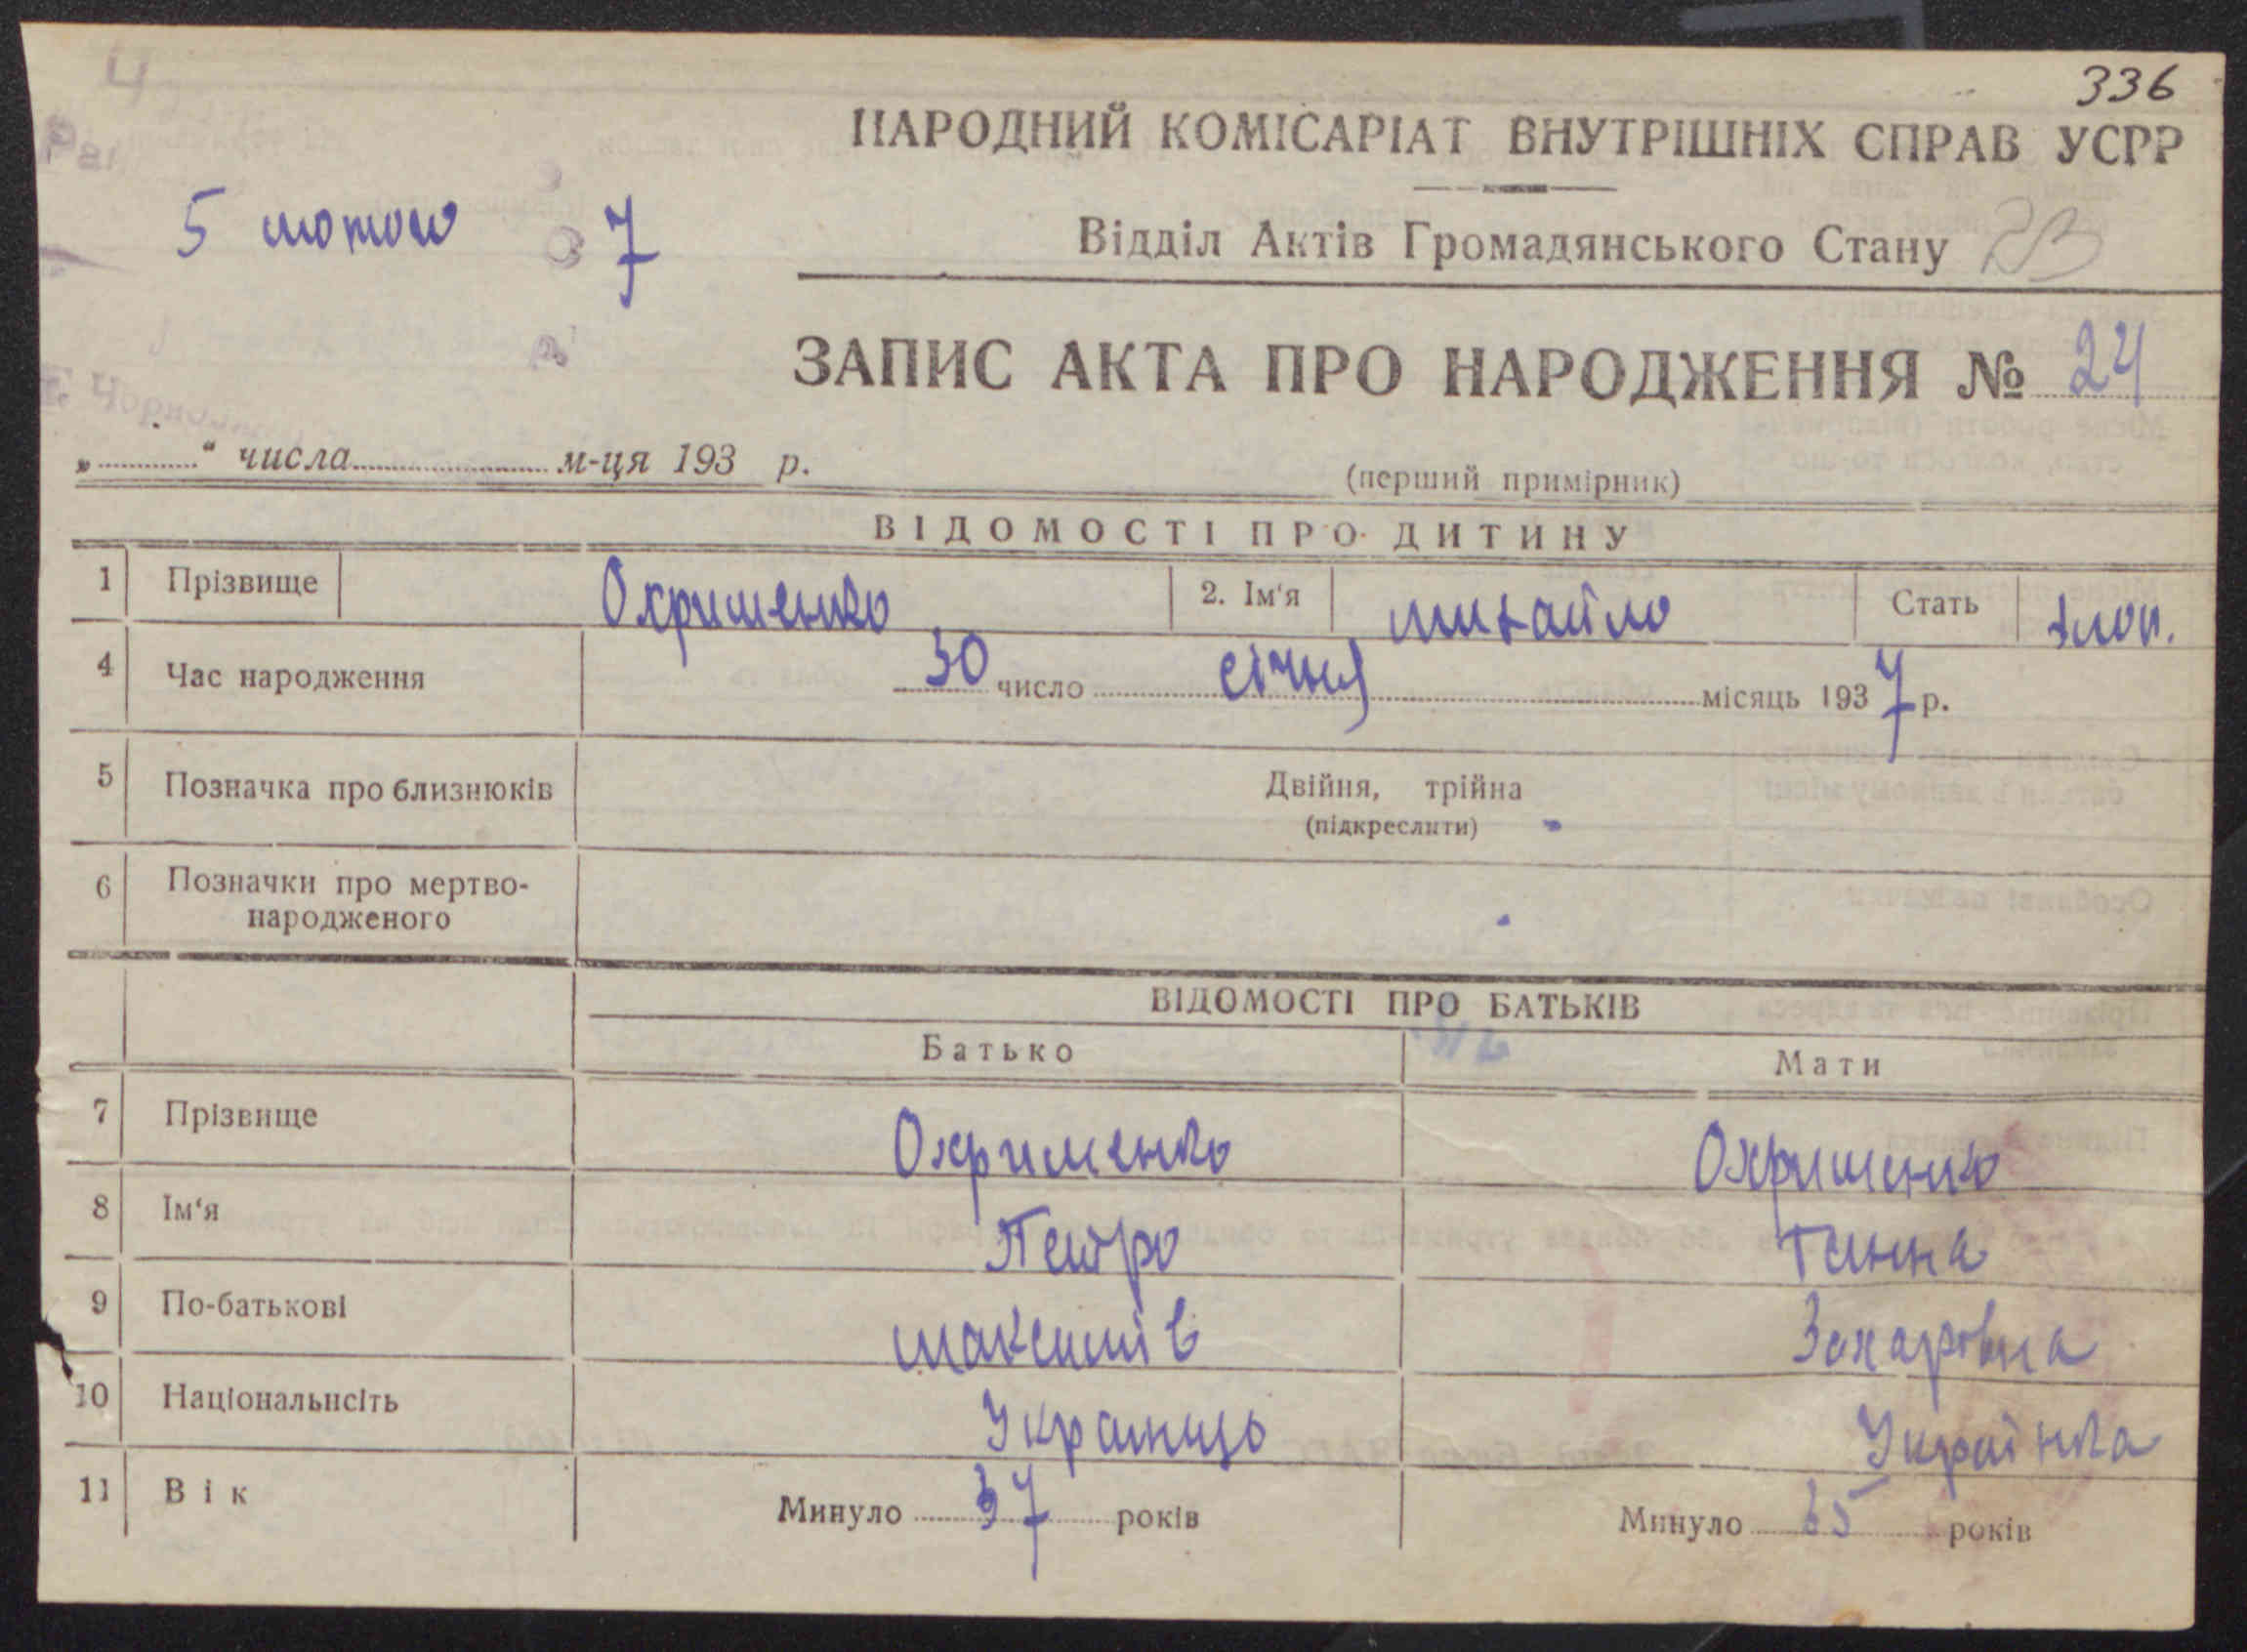 336
НАРОДНИЙ КОМІСАРІАТ ВНУТРІШНІХ СПРАВ УСРР
5 лютого 7
Відділ Актів Громадянського Стану
ЗАПИС АКТА ПРО НАРОДЖЕННЯ № 24
„ “ числа м-ця 193 р.
(перший примірник)
ВІДОМОСТІ ПРО ДИТИНУ
1 Прізвище Охрименко 2. Ім'я Михайло Стать хлоп.
4 Час народження 30 число січня місяць 1937 р.
5 Позначка про близнюків Двійня, трійна
(підкреслити)
6 Позначки про мертво-
народженого
ВІДОМОСТІ ПРО БАТЬКІВ
Батько Мати
7 Прізвище Охрименко Охрименко
8 Ім'я Петро Ганна
9 По-батькові Максимів Захаровна
10 Національнсіть Українць Українка
11 Вік Минуло 37 років Минуло 35 років